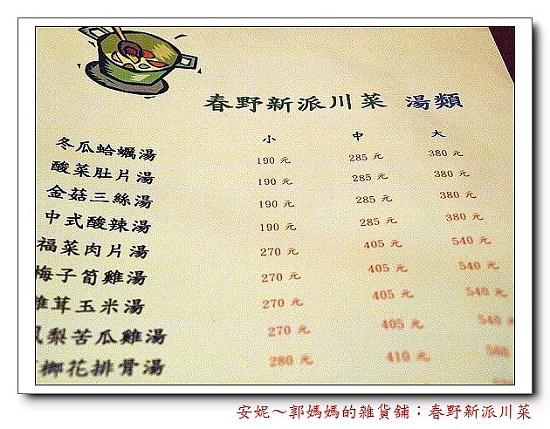 春野新派川菜 湯類
小 中 大
冬瓜蛤蠣湯 190 元 285 元 380 元
酸菜肚片湯 190 元 285 元 380 元
金菇三絲湯 190 元 285 元 380 元
中式酸辣湯 190 元 285 元 380 元
福菜肉片湯 270 元 405 元 540 元
梅子筍雞湯 270 元 405 元 540 元
茸玉米湯 270 元 405 元 540 元
梨苦瓜雞湯 270 元 405 元 540
榔花排骨湯 280 元 410 元
安妮～郭媽媽的雜貨舖：春野新派川菜